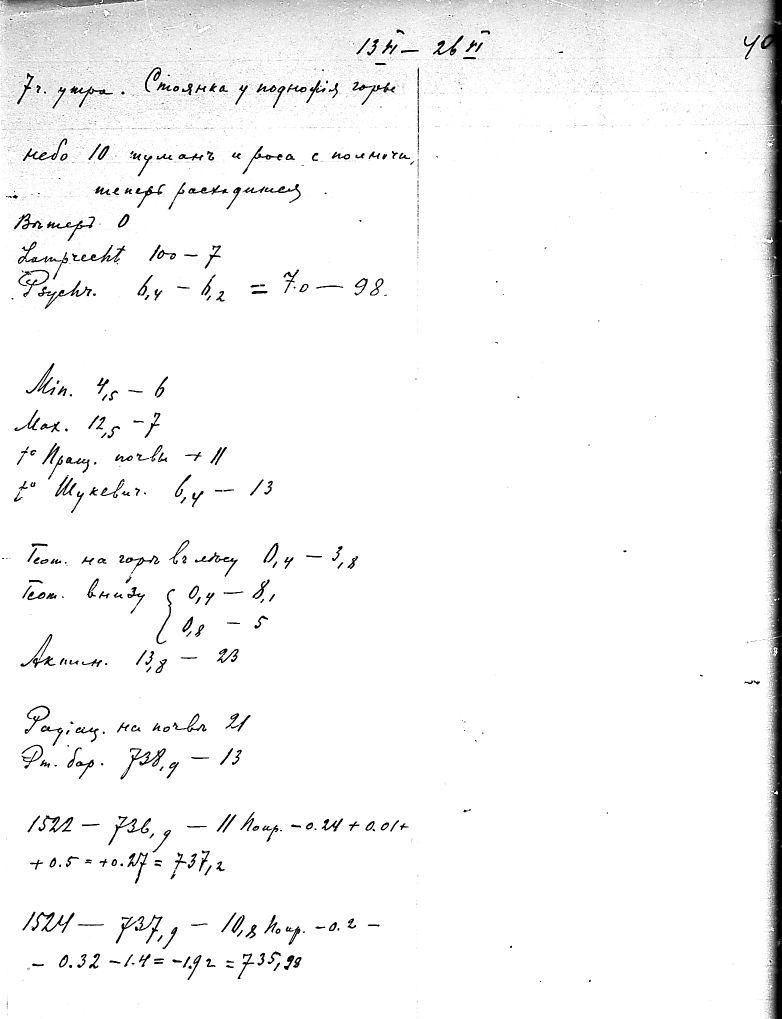 13 VI — 26 VI
40
7 ч. утра. Стоянка у подножія горы
небо 10 туманъ и роса с полночи,
теперь расходится
Вѣтеръ 0
Lamprecht 100 — 7
Psychr. 6,4 — 6,2 = 7.0 — 98.
Min. 4,5 — 6
Max. 12,5 — 7
t° Пращ. почвы + 11
t° Шукевич. 6,4 — 13
Геот. на горѣ въ лѣсу 0,4 — 3,8
Геот. внизу { 0,4 — 8,1
0,8 — 5
Актин. 13,8 — 23
Радіац. на почвѣ 21
Рт. бар. 738,9 — 13
1522 — 736,9 — 11 Попр. — 0.24 + 0.01 +
+ 0.5 = + 0.27 = 737,2
1524 — 737,9 — 10,8 Попр. — 0.2 —
— 0.32 — 1.4 = — 1.92 = 735,98